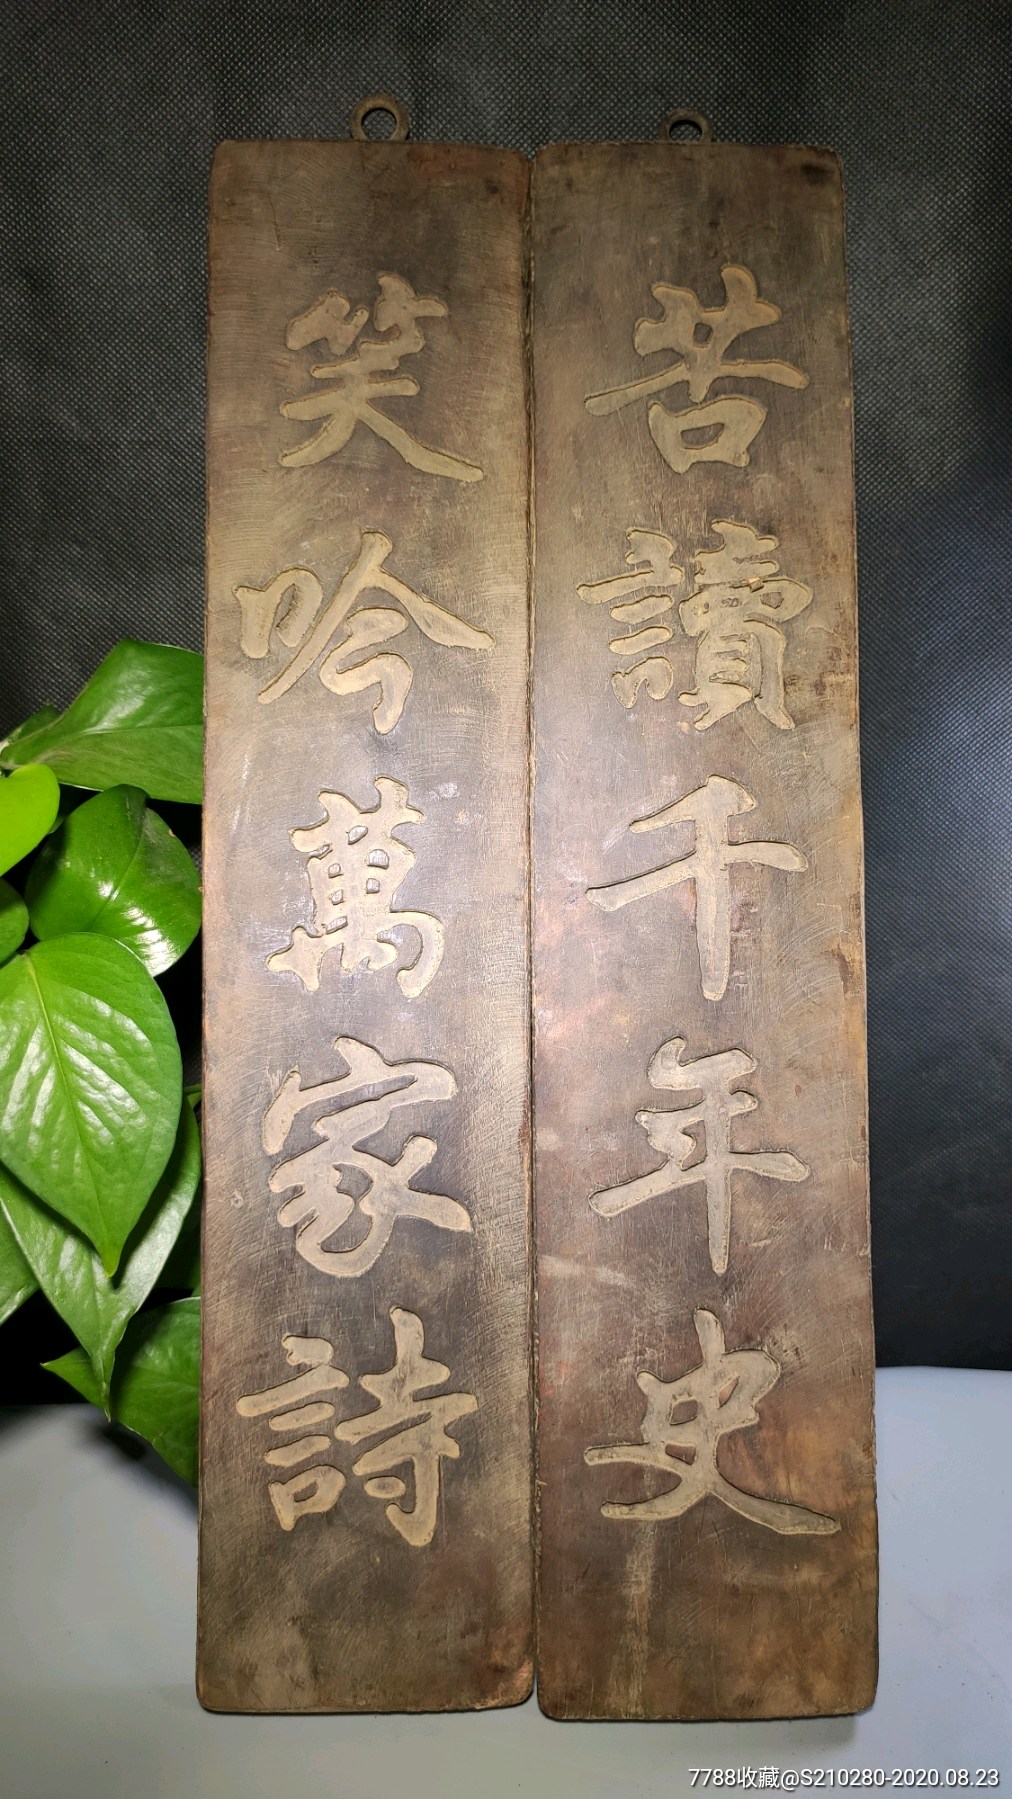 苦讀千年史
笑吟萬家詩
7788收藏@S210280-2020.08.23